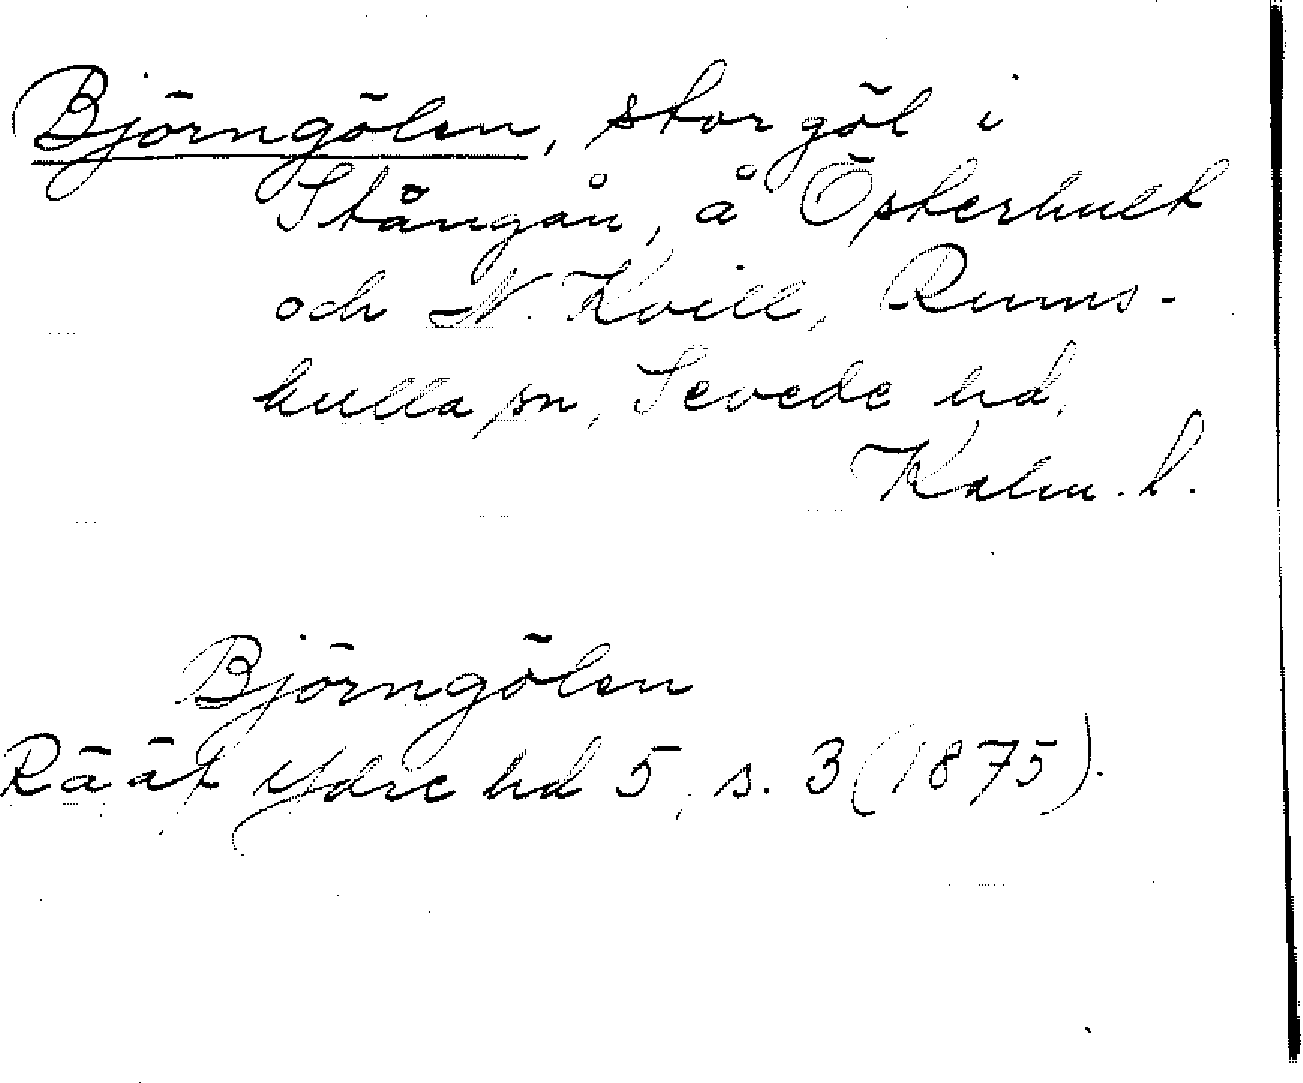 Björngölen, stor göl i
Stångån, å Österhult
och N. Kvill, Rums-
kulla sn, Sevede hd,
Kalm. l.
Björngölen
Räät Ydre hd 5, s. 3 (1875).